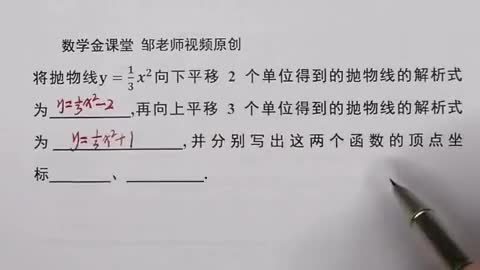 数学金课堂 邹老师视频原创
将抛物线y=1/3x²向下平移 2 个单位得到的抛物线的解析式
为 y=1/3x²-2 ,再向上平移 3 个单位得到的抛物线的解析式
为 y=1/3x²+1 ,并分别写出这两个函数的顶点坐
标______、________.